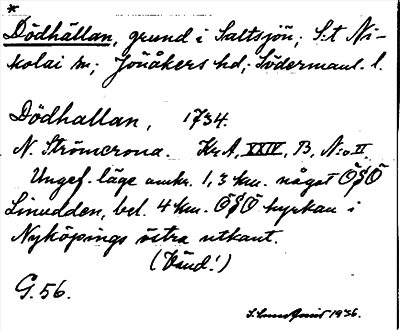 *
Dödhällan, grund i Saltsjön; S:t Ni-
kolai sn; Jönåkers hd; Södermanl. l.
Dödhallan, 1734.
N. Strömcrona. Kr.A, XXIV, B, N:o II.
Ungef. läge 1,3 km. något ÖSÖ
Linudden, bel. 4 km. ÖSÖ kyrkan i
Nyköpings östra utkant.
(Vänd!)
G. 56.
1936.